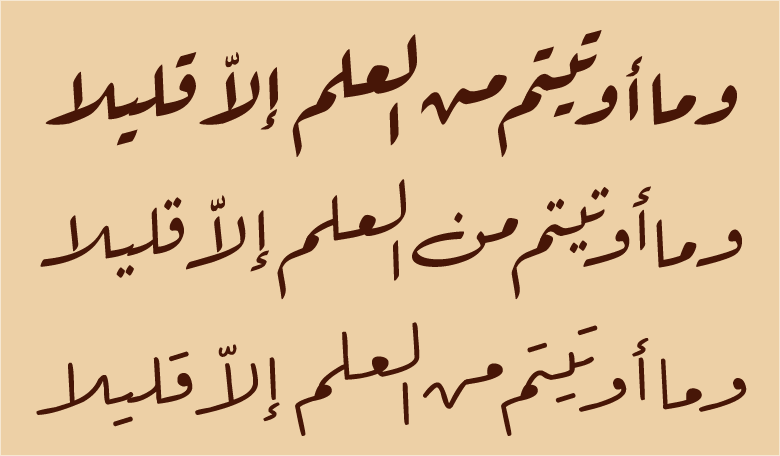 وما أوتيتم من العلم إلاّ قليلا
وما أوتيتم من العلم إلاّ قليلا
وما أوتيتم من العلم إلاّ قليلا